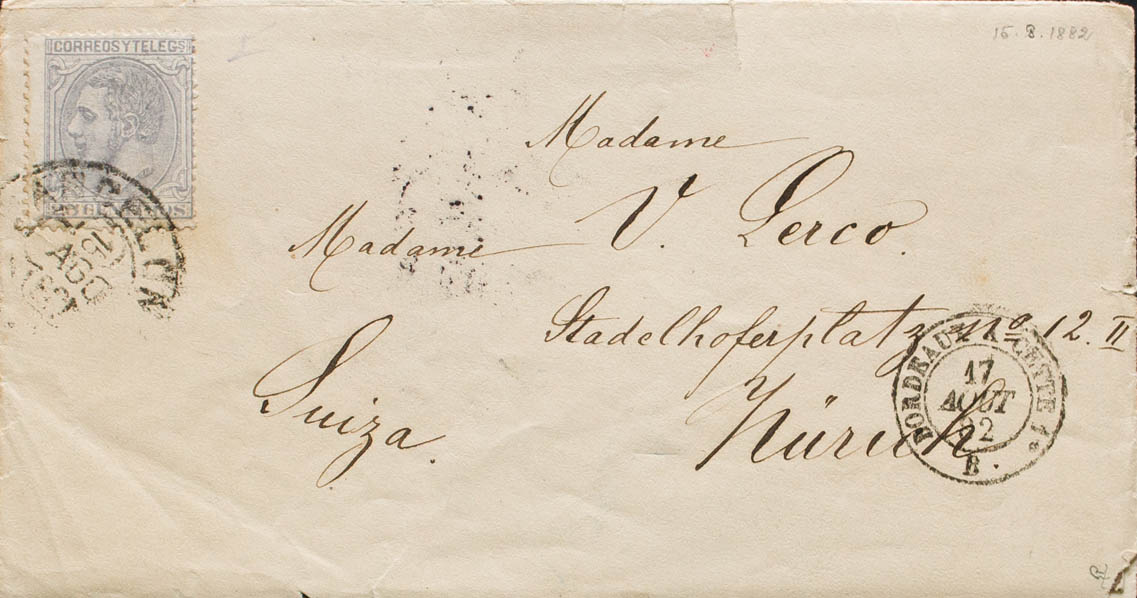 CORREOS Y TELEGS
15. 8. 1882
Madame
V. Lerco.
Madame
Stadelhoferplatz no 12. II
Suiza.
Zürich
BORDEAUX A CETTE 1o
17
AOUT
82
B.